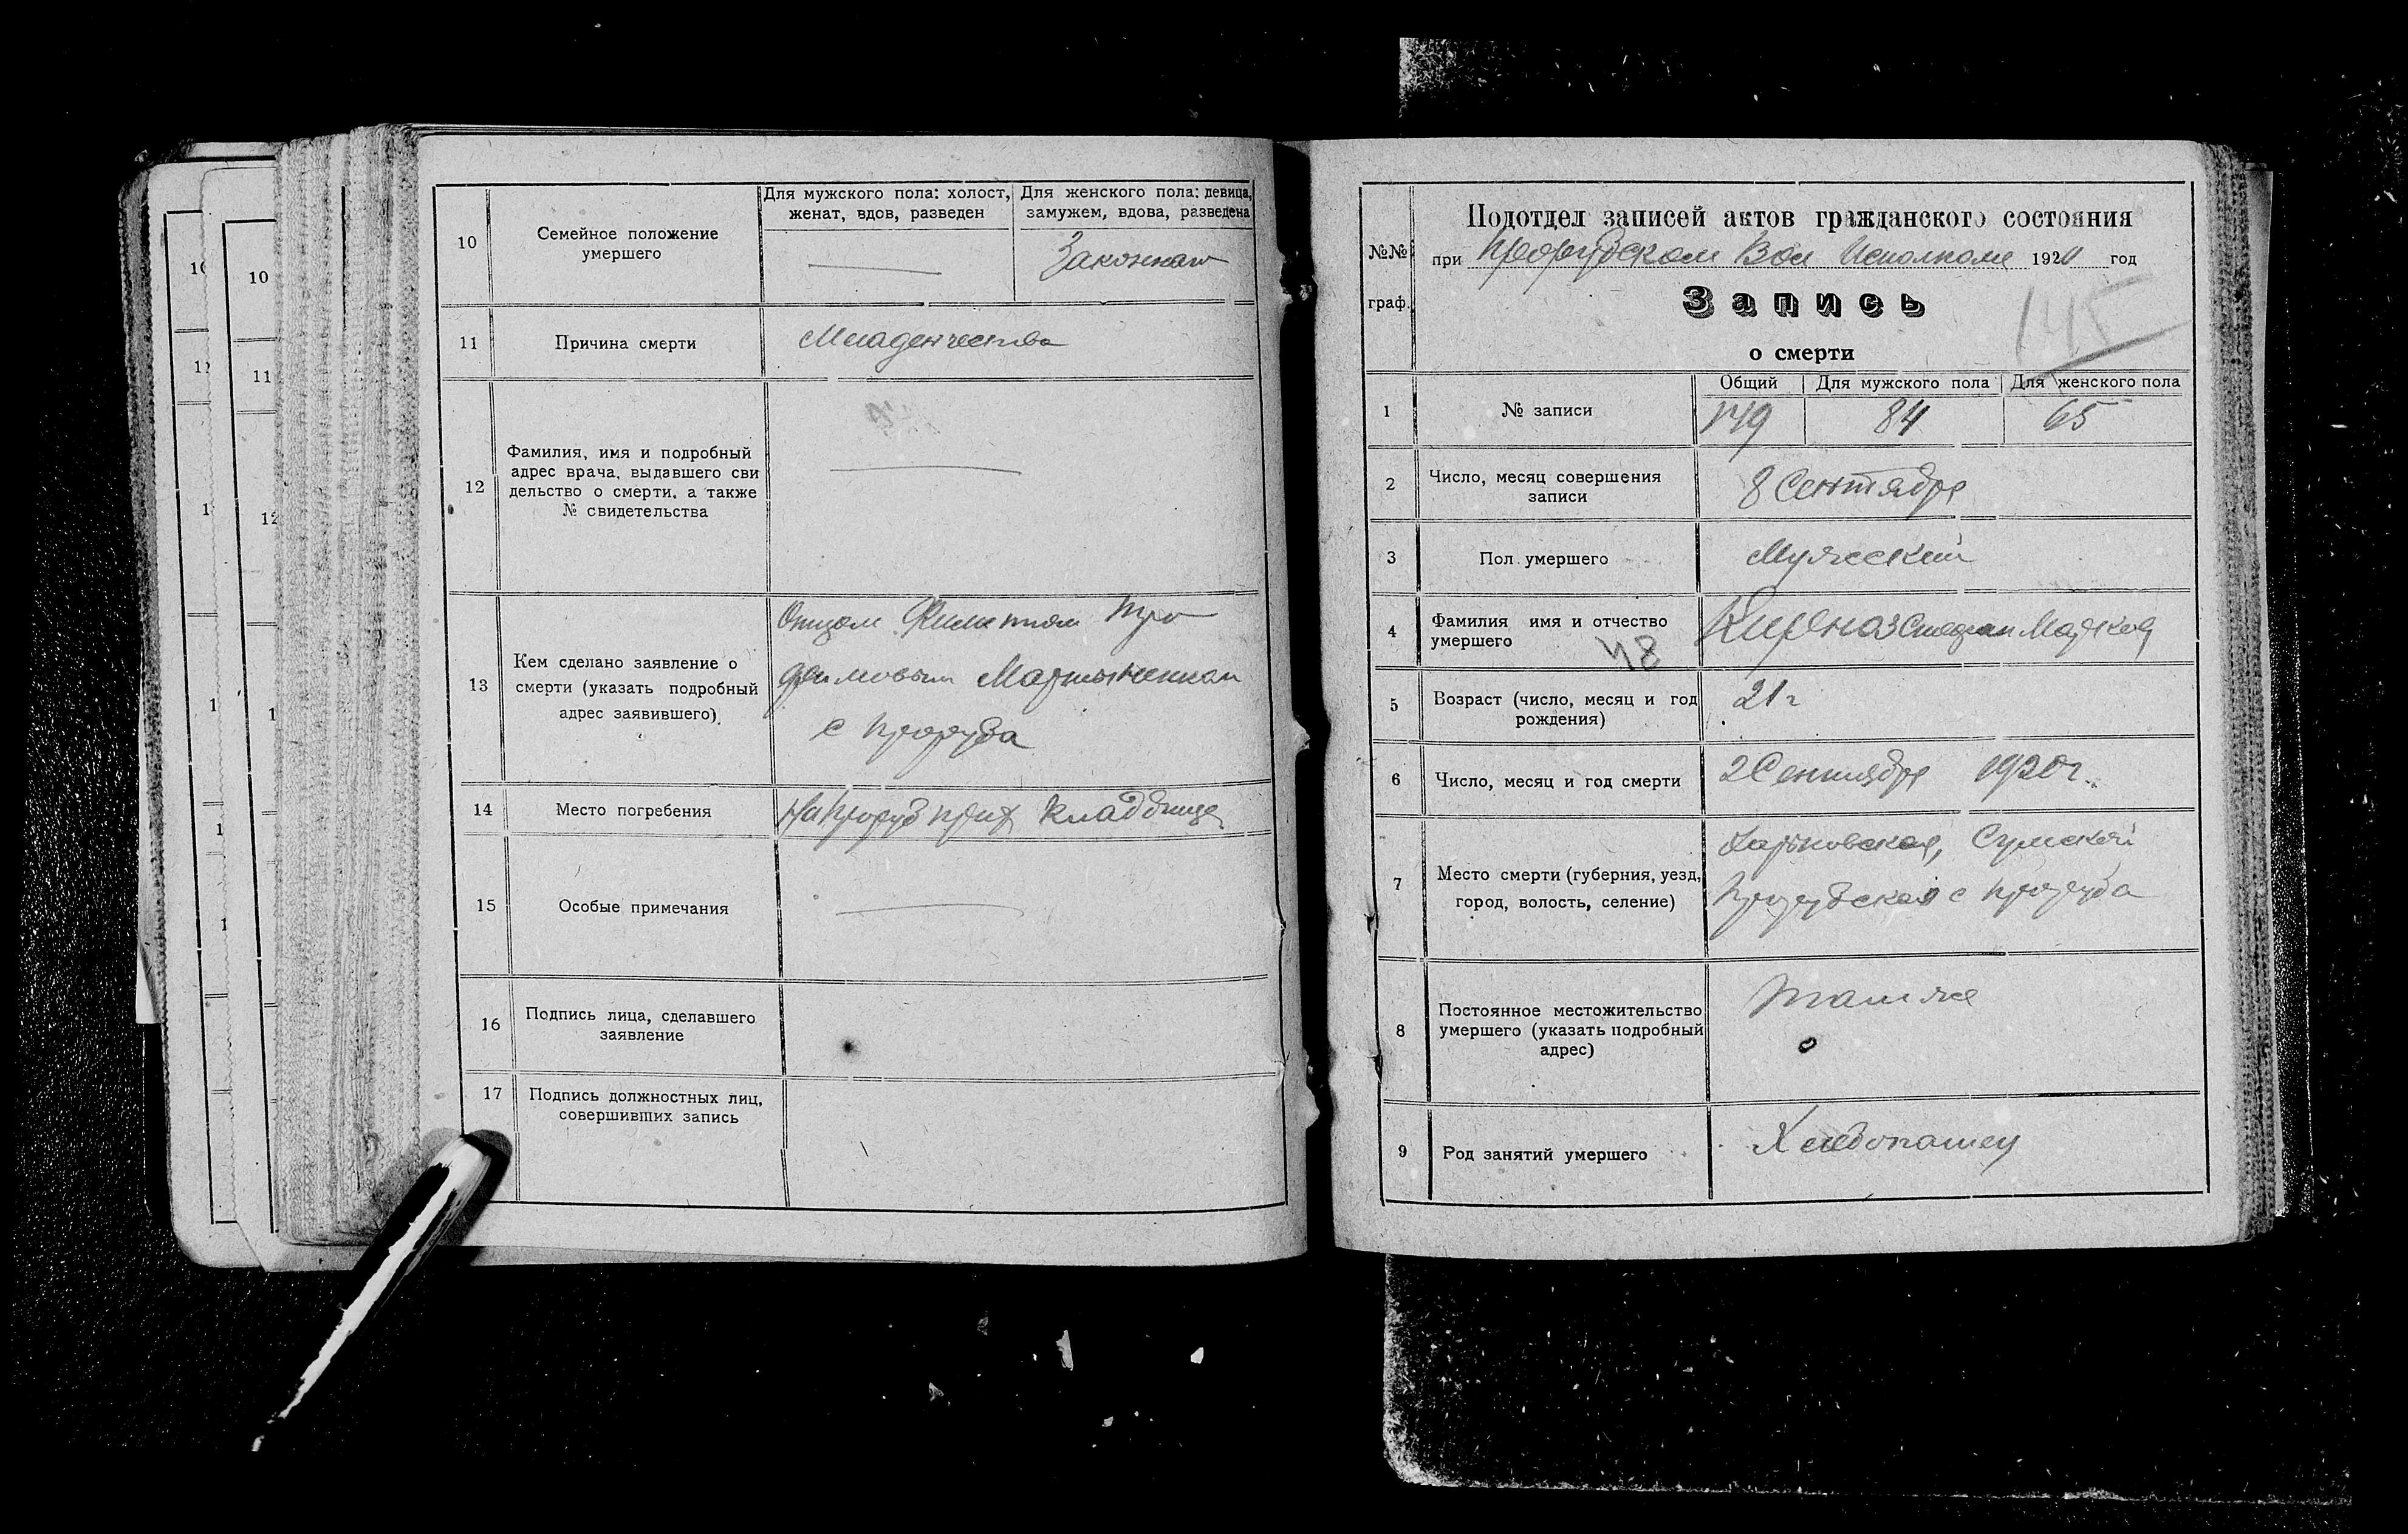 10
11
1
1
1
10
11
12
1
10
Семейное положение
умершего
Для мужского пола: холост,
женат, вдов, разведен
Для женского пола: девица,
замужем, вдова, разведена
Законная
11
Причина смерти
Младенчества
12
Фамилия, имя и подробный
адрес врача, выдавшего сви
дельство о смерти, а также
№ свидетельства
13
Кем сделано заявление о
смерти (указать подробный
адрес заявившего)
Отцом Филиппом Тро
фимовым Мартыненком
с Проруба
14
Место погребения
На Проруб прих кладбище
15
Особые примечания
16
Подпись лица, сделавшего
заявление
17
Подпись должностных лиц,
совершивших запись
№№
граф.
Подотдел записей актов гражданского состояния
при Прорубском Вол Исполкоме 1920 год
Запись
о смерти
145
1
№ записи
Общий
Для мужского пола
Для женского пола
149
84
65
2
Число, месяц совершения
записи
8 Сентября
3
Пол умершего
Мужеский
4
Фамилия имя и отчество
умершего
48
Кирноз Стефан
5
Возраст (число, месяц и год
рождения)
21 г
6
Число, месяц и год смерти
2 Сентября 1920 г.
7
Место смерти (губерния, уезд,
город, волость, селение)
Харьковская, Сумской
Прорубской с Проруба
8
Постоянное местожительство
умершего (указать подробный
адрес)
Там же
9
Род занятий умершего
Хлебопашец